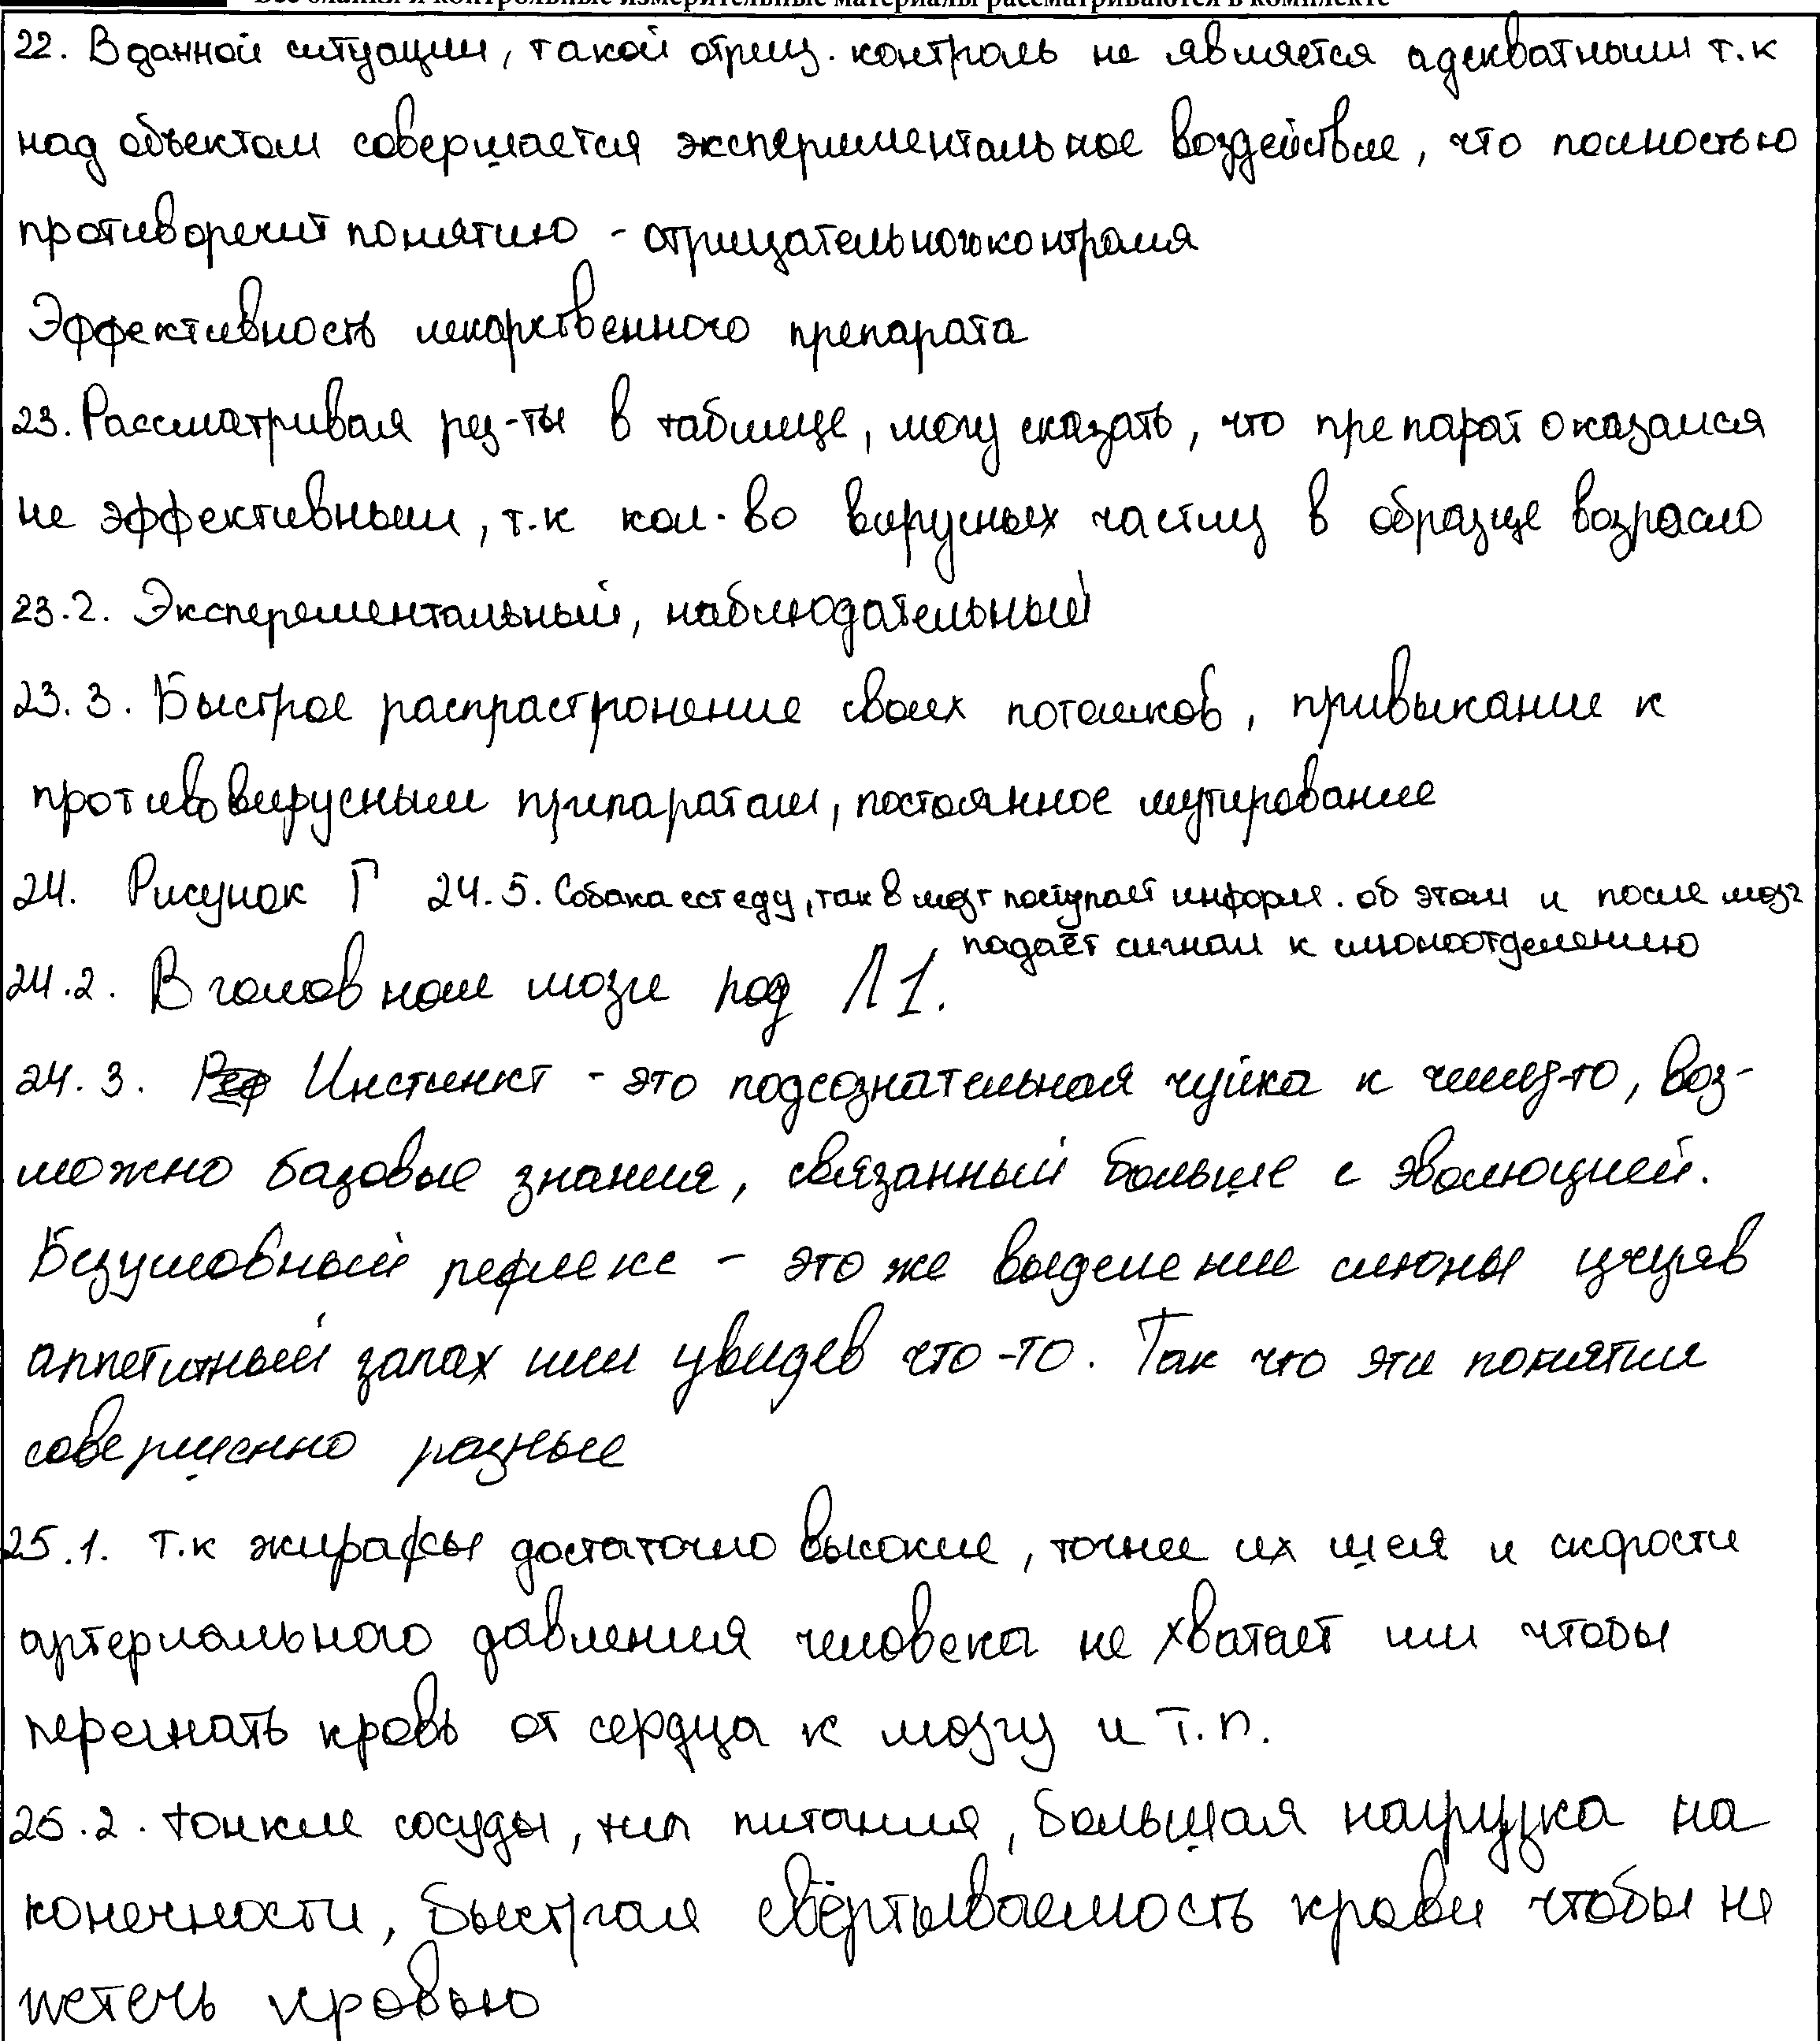 Все бланки и контрольные измерительные материалы рассматриваются в комплекте
22. В данной ситуации, такой отриц. контроль не является адекватным т.к
над объектом совершается экспериментальное воздействие, что полностью
противоречит понятию - отрицательного контроля
Эффективность лекарственного препарата
23. Рассматривая рез-ты в таблице, могу сказать, что препарат оказался
не эффективным, т.к кол-во вирусных частиц в образце возрасло
23.2. Эксперементальный, наблюдательный
23.3. Быстрое распрастронение своих потомков, привыкание к
противовирусным припаратам, постоянное мутирование
24. Рисунок Г 24.5. Собака ест еду, так в мозг поступает информ. об этом и после мозг
падаёт сигнал к слюноотделению
24.2. В головном мозге под Л1.
24.3. Инстинкт - это подсознательная чуйка к чему-то, воз-
можно базовые знания, связанный больше с эволюцией.
Безусловный рефлекс - это же выделение слюны учуяв
аппетитный запах или увидев что-то. Так что эти понятия
совершенно разные
25.1. т.к жирафы достаточно высокие, точнее их шея и скорости
артериального давления человека не хватает им чтобы
перегнать кровь от сердца к мозгу и т.п.
25.2. тонкие сосуды, тип питания, большая нагрузка на
конечности, быстрая свёртываемость крови чтобы не
истечь кровью